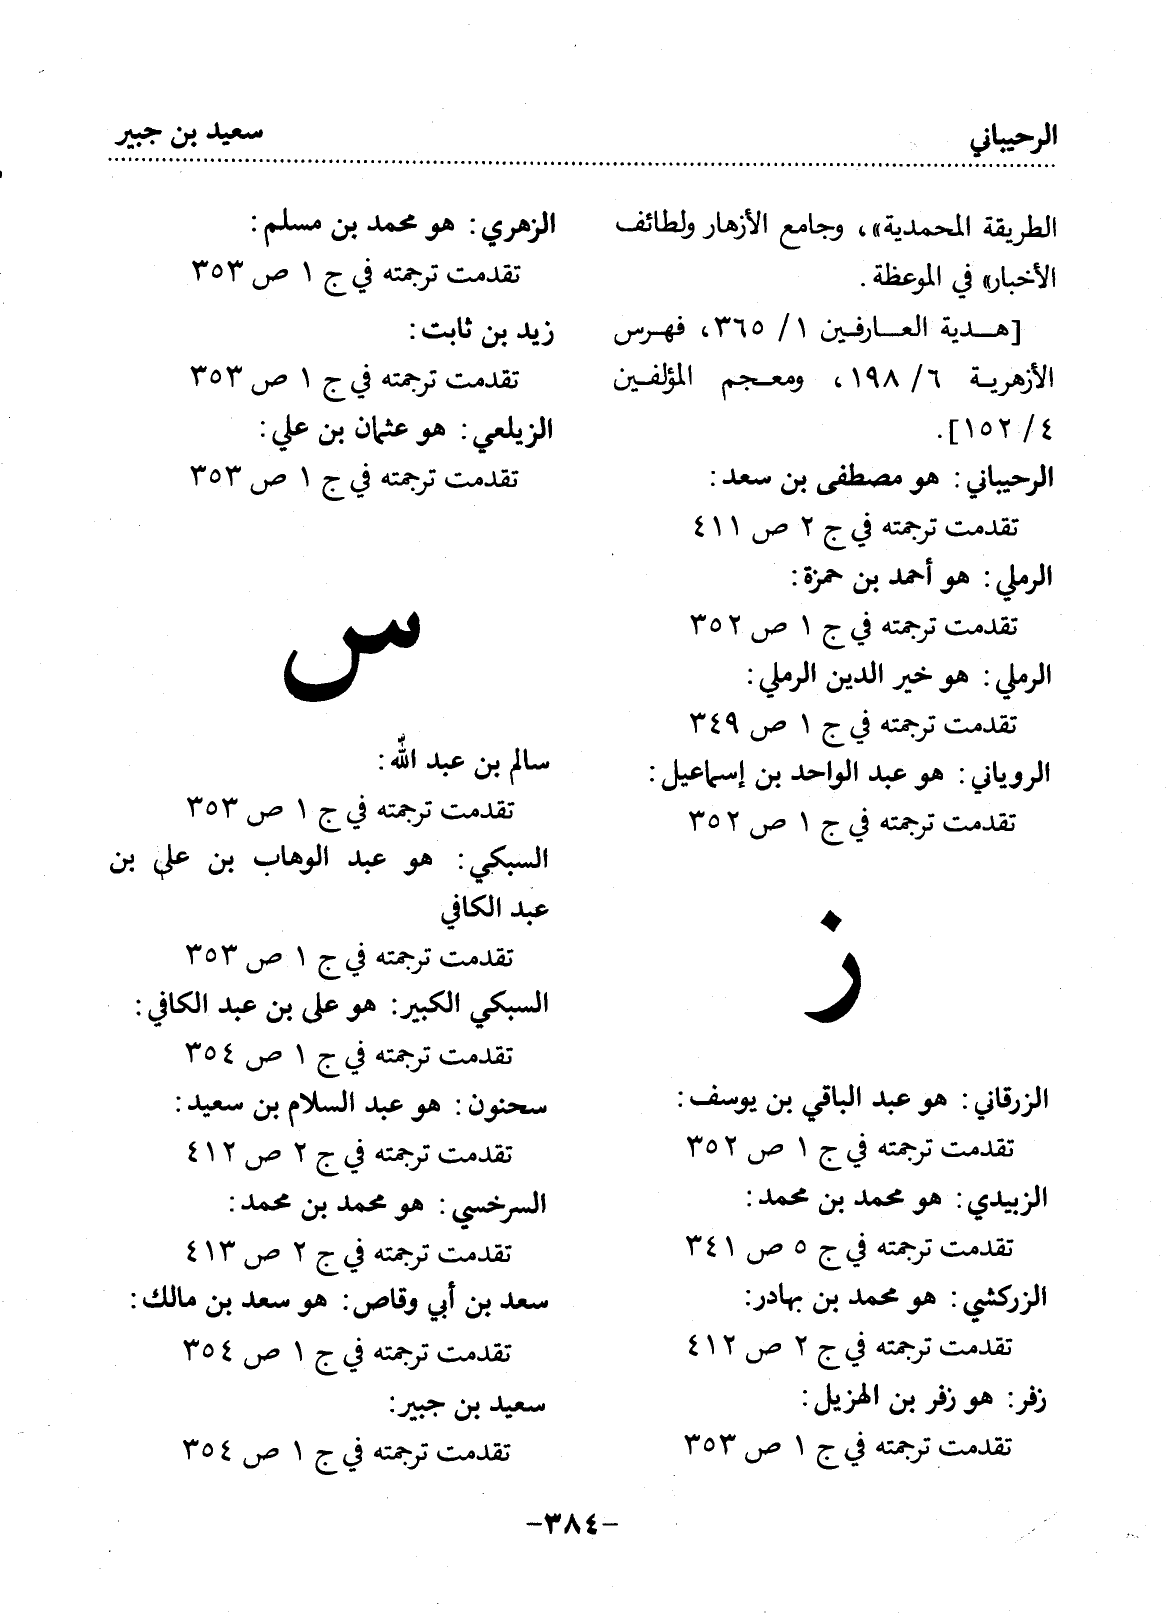 الرحيباني
سعيد بن جبير
الطريقة المحمدية»، وجامع الأزهار ولطائف
الأخبار» في الموعظة.
[هـدية العـارفـين ١/ ٣٦٥، فهـرس
الأزهريـة ٦/ ١٩٨، ومعـجم المؤلفـين
٤/ ١٥٢].
الرحيباني: هو مصطفى بن سعد:
تقدمت ترجمته في ج ٢ ص ٤١١
الرملي: هو أحمد بن حمزة:
تقدمت ترجمته في ج ١ ص ٣٥٢
الرملي: هو خير الدين الرملي:
تقدمت ترجمته في ج ١ ص ٣٤٩
الروياني: هو عبد الواحد بن إسماعيل:
تقدمت ترجمته في ج ١ ص ٣٥٢
ز
الزرقاني: هو عبد الباقي بن يوسف:
تقدمت ترجمته في ج ١ ص ٣٥٢
الزبيدي: هو محمد بن محمد:
تقدمت ترجمته في ج ٥ ص ٣٤١
الزركشي: هو محمد بن بهادر:
تقدمت ترجمته في ج ٢ ص ٤١٢
زفر: هو زفر بن الهزيل:
تقدمت ترجمته في ج ١ ص ٣٥٣
الزهري: هو محمد بن مسلم:
تقدمت ترجمته في ج ١ ص ٣٥٣
زيد بن ثابت:
تقدمت ترجمته في ج ١ ص ٣٥٣
الزيلعي: هو عثمان بن علي:
تقدمت ترجمته في ج ١ ص ٣٥٣
س
سالم بن عبد الله:
تقدمت ترجمته في ج ١ ص ٣٥٣
السبكي: هو عبد الوهاب بن علي بن
عبد الكافي
تقدمت ترجمته في ج ١ ص ٣٥٣
السبكي الكبير: هو علي بن عبد الكافي:
تقدمت ترجمته في ج ١ ص ٣٥٤
سحنون: هو عبد السلام بن سعيد:
تقدمت ترجمته في ج ٢ ص ٤١٢
السرخسي: هو محمد بن محمد:
تقدمت ترجمته في ج ٢ ص ٤١٣
سعد بن أبي وقاص: هو سعد بن مالك:
تقدمت ترجمته في ج ١ ص ٣٥٤
سعيد بن جبير:
تقدمت ترجمته في ج ١ ص ٣٥٤
-٣٨٤-